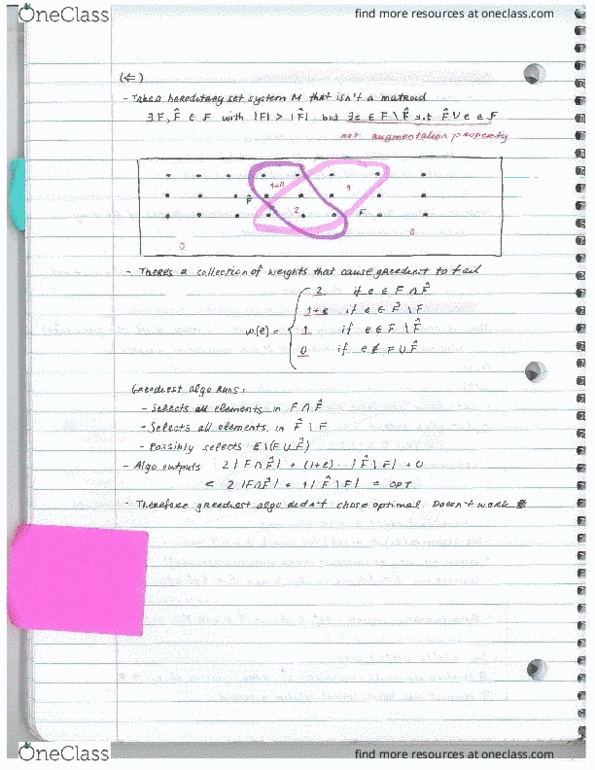 OneClass
find more resources at oneclass.com
(⇐)
- Take a hereditary set system M that isn't a matroid
∃ F, F̂ ∈ F with |F| > |F̂| but ∄e ∈ F \ F̂ s.t. F̂ ∪ e ∈ F
not augmentation property
1+n 1
F̂
2 F
0 0
- There's a collection of weights that cause greediest to fail
2 if e ∈ F ∩ F̂
1+e if e ∈ F̂ \ F
w(e) =
1 if e ∈ F \ F̂
0 if e ∉ F ∪ F̂
Greediest algo runs:
- Selects all elements in F ∩ F̂
- Selects all elements in F̂ \ F
- Possibly selects E \ (F ∪ F̂)
- Algo outputs 2|F ∩ F̂| + (1+e) · |F̂ \ F| + 0
< 2|F∩F̂| + 1|F̂ \ F| = OPT
- Therefore greediest algo didn't chose optimal. Doesn't work
OneClass
find more resources at oneclass.com